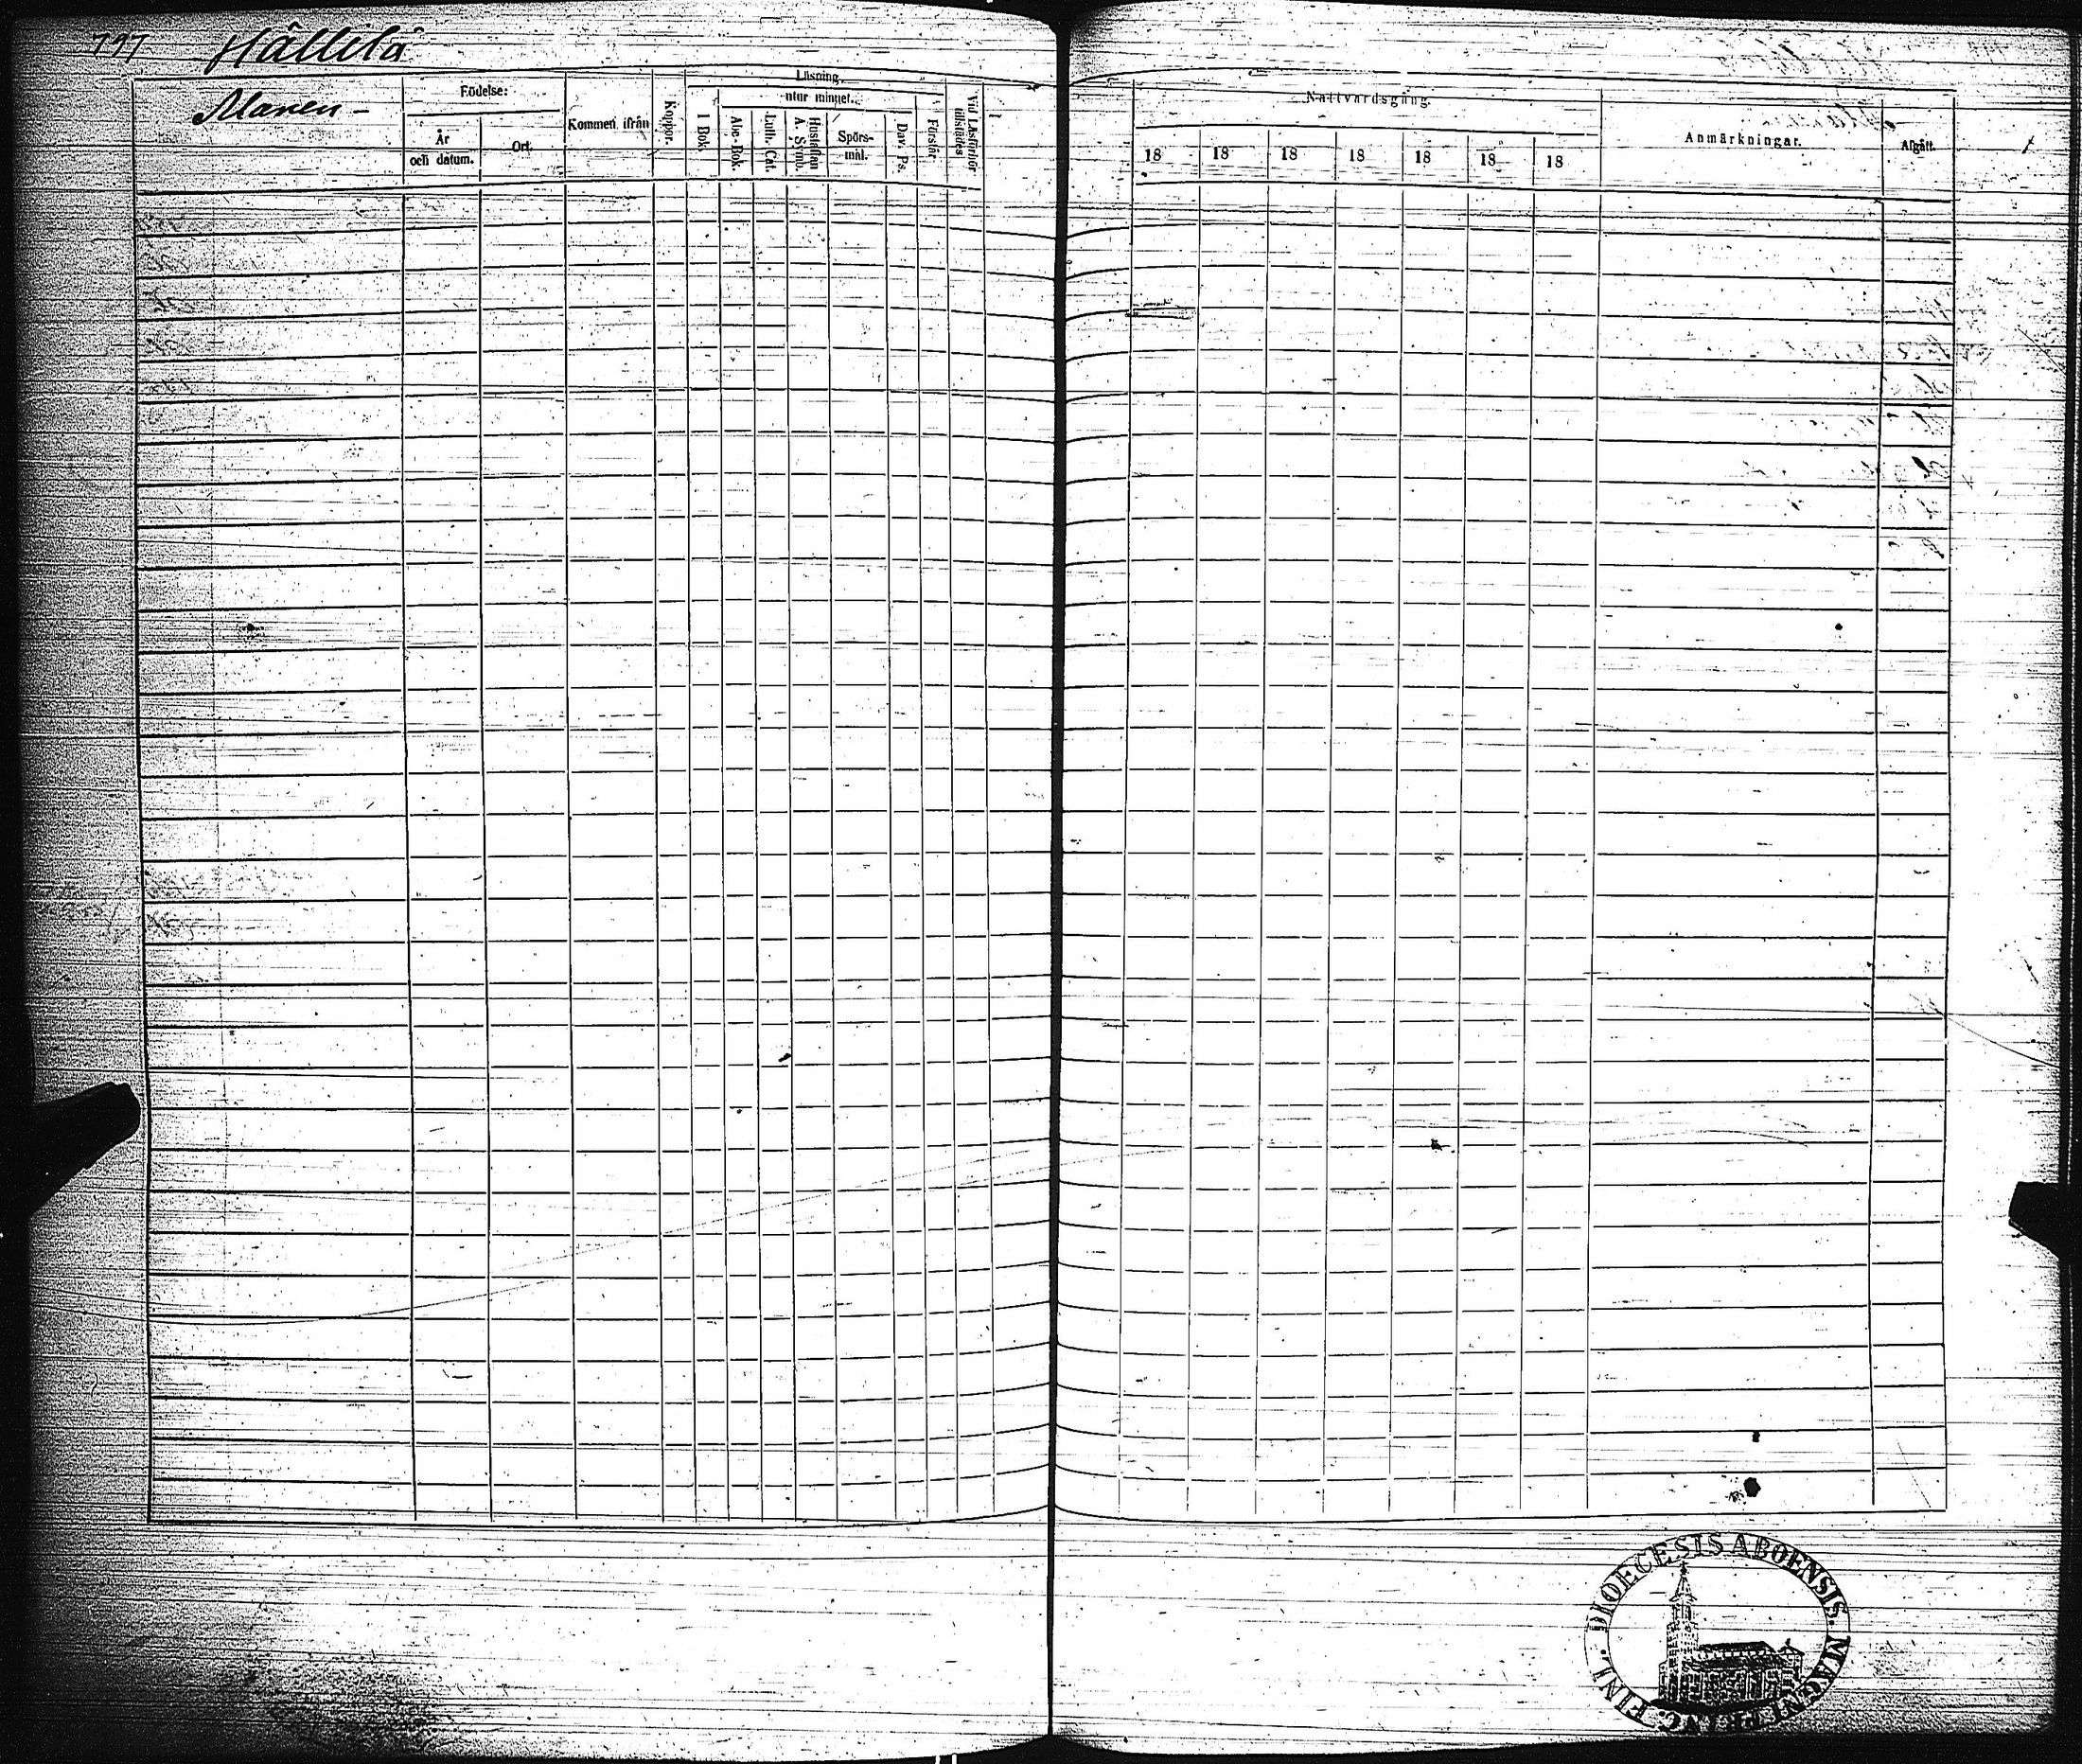 797 Hällilä
Alanen -
Födelse:
År
och datum.
Ort
Kommen ifrån
Koppor.
Läsning.
utur minnet.
I Bok.
Abc-Bok.
Luth. Cat.
Hustaflan
A. Symb.
Spörs-
mål.
Dav. Ps.
Förstår
Vid Läsförhör
tillstädes
Nattvardsgång.
18 18 18 18 18 18 18
Anmärkningar.
Afgått.
DIOECESIS ABOENSIS. MAGNI PRINC. FINL.